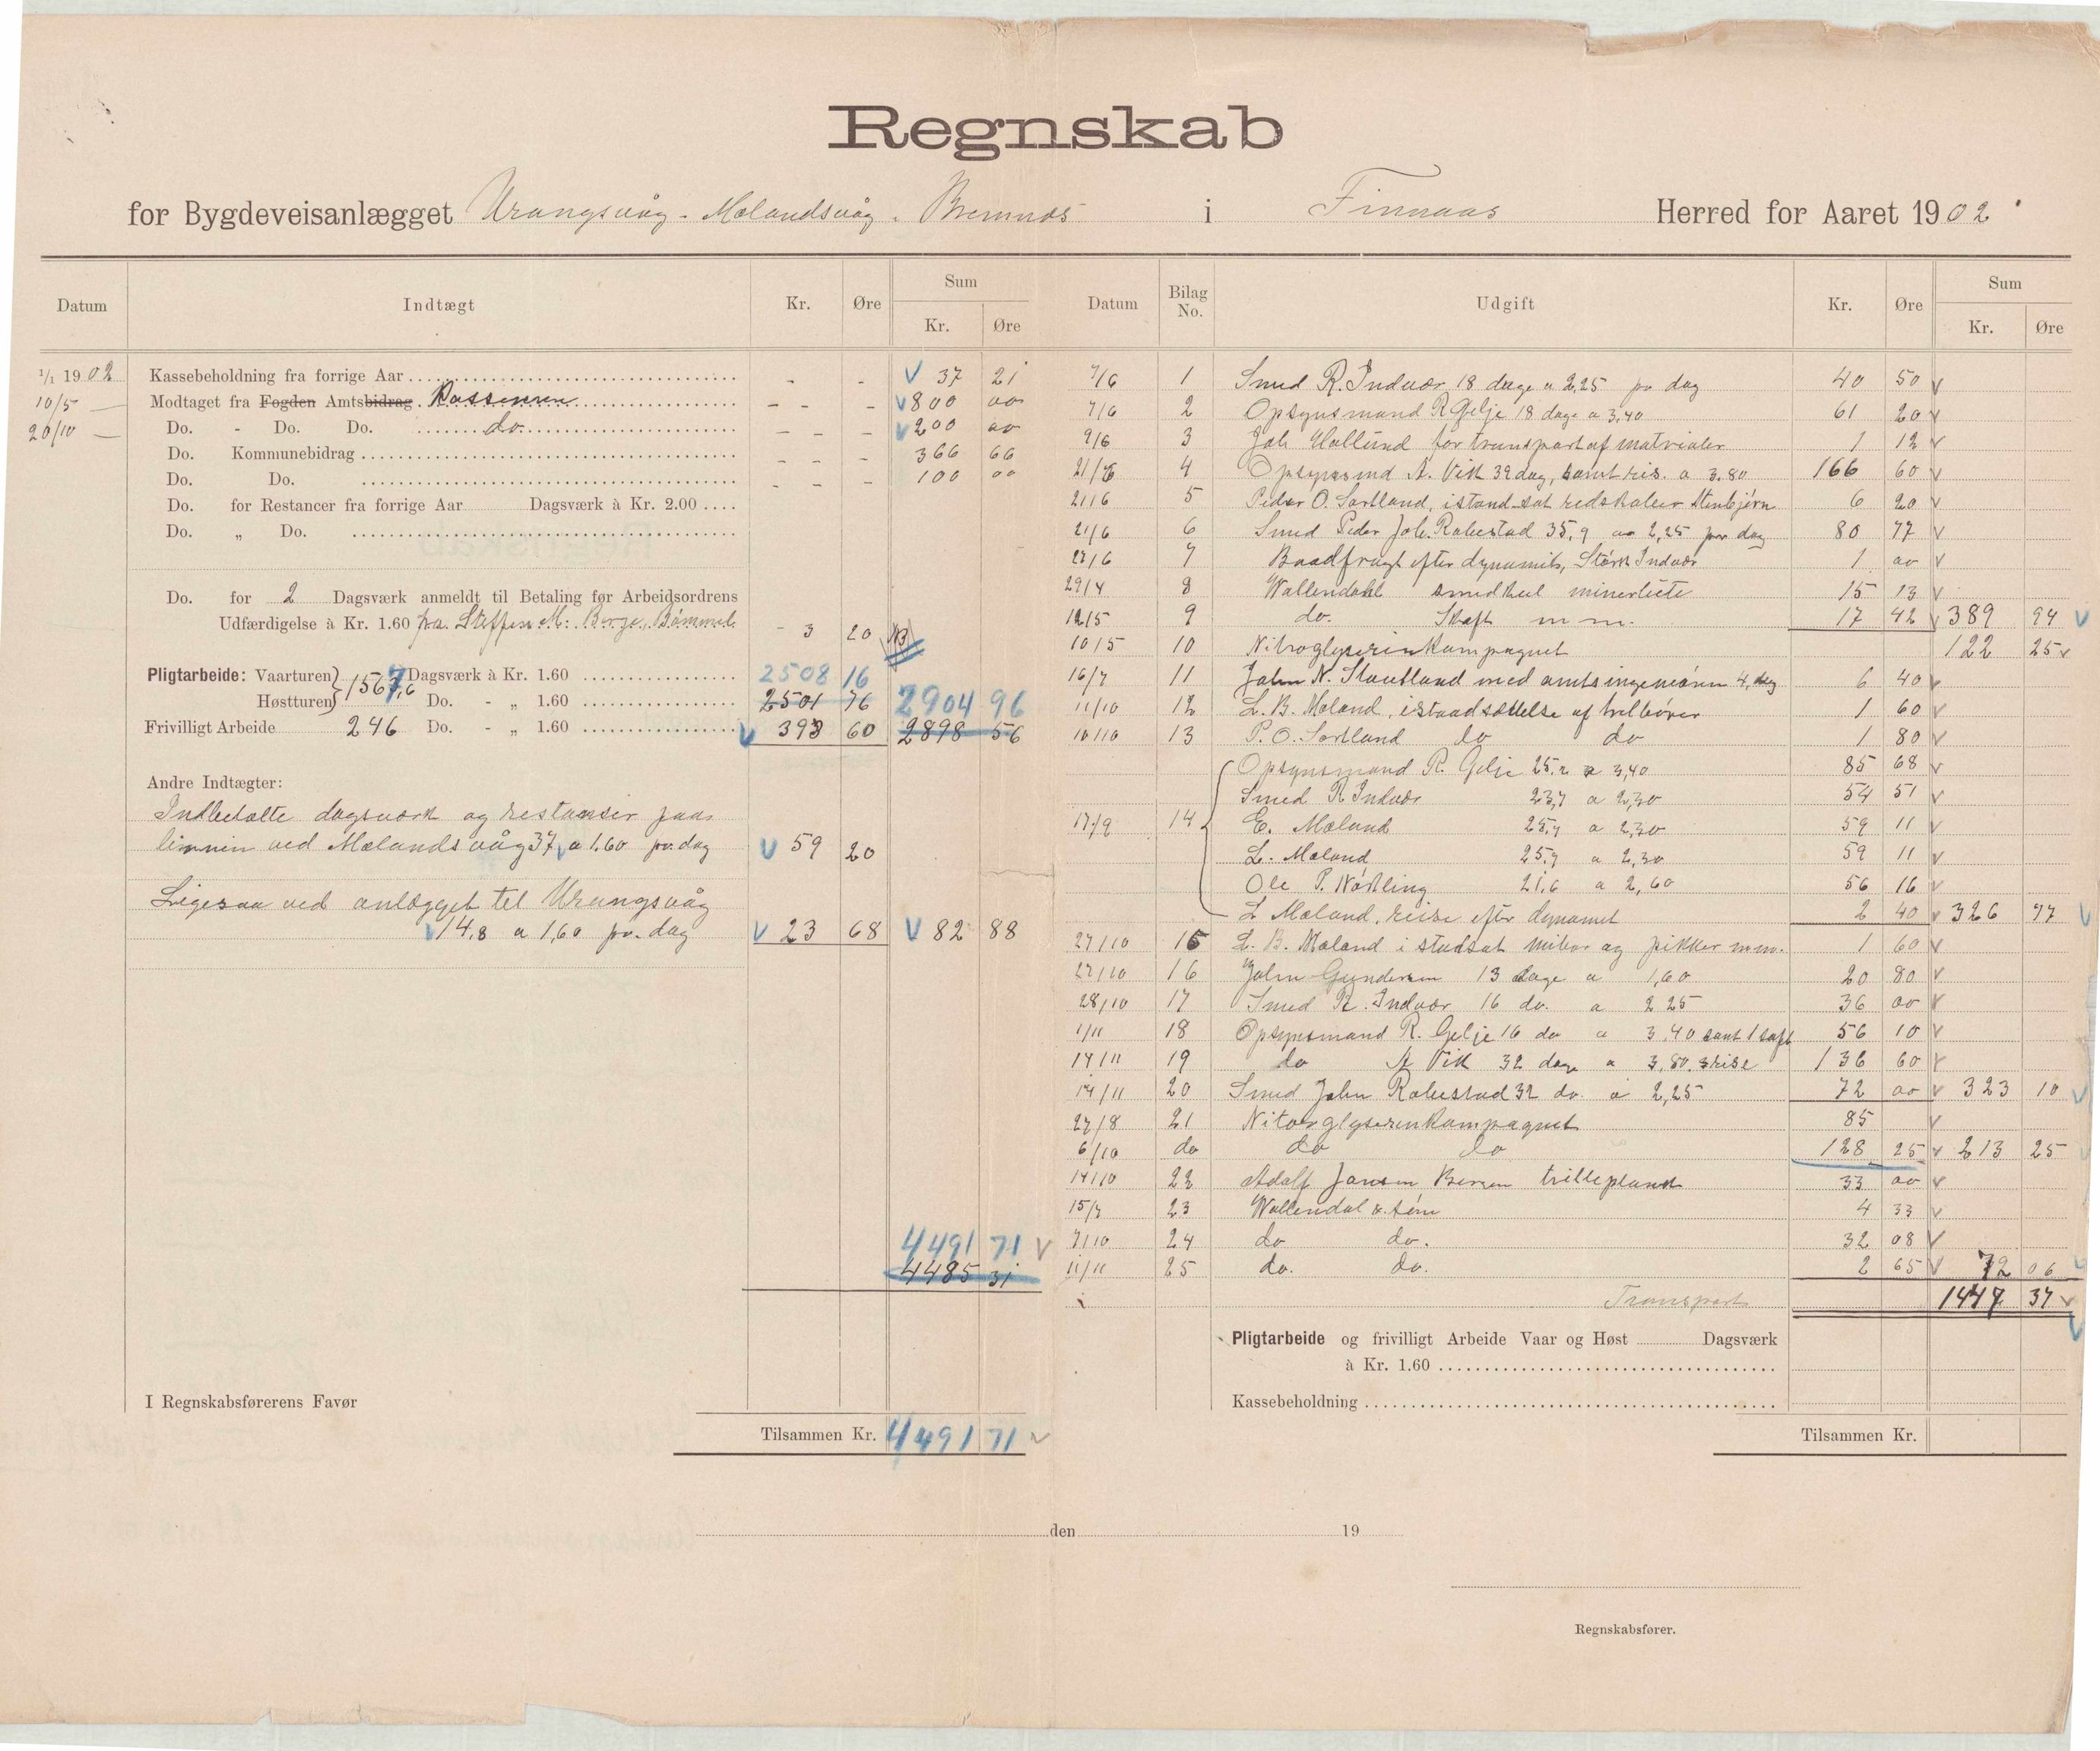 Regnskab
for Bygdeveisanlægget Urangsvåg - Mælandsvåg - Bremnes i Finnaas Herred for Aaret 1902
Datum Indtægt Kr. Øre Sum Kr. Øre
1/1 1902 Kassebeholdning fra forrige Aar - - 37 21
10/5 — Modtaget fra Fogden Amtsbidrag Kasseren - - - 800 00
20/10 — Do. - Do. Do. do. - - - 200 00
Do. Kommunebidrag - - - 366 66
Do. Do. - - - 100 00
Do. for Restancer fra forrige Aar Dagsværk à Kr. 2.00
Do. „ Do.
Do. for 2 Dagsværk anmeldt til Betaling før Arbeidsordrens
Udfærdigelse à Kr. 1.60 fra Steffen M. Berge, Bømmel - 3 20 NB
Pligtarbeide: Vaarturen Dagsværk à Kr. 1.60 2508 16
1567,6
Høstturen Do. - „ 1.60 2501 76 2904 96
Frivilligt Arbeide 246 Do. - „ 1.60 393 60 2898 56
Andre Indtægter:
Indbetalte dagsværk og restanser paa
linnien ved Mælandsvåg 37 a 1.60 pr. dag 59 20
Ligesaa ved anlægget til Urangsvåg
14,8 a 1,60 pr. dag 23 68 82 88
4491 71
4485 31
I Regnskabsførerens Favør
Tilsammen Kr. 4491 71
Datum Bilag No. Udgift Kr. Øre Sum Kr. Øre
7/6 1 Smed R. Indvær 18 dage a 2,25 pr dag 40 50
7/6 2 Opsynsmand R Gjelje 18 dage a 3,40 61 20
9/6 3 Joh Halleund for transport af matrialer 1 12
21/6 4 Opsynsmd A. Vik 39 dag, samt reis. a 3.80 166 60
21/6 5 Peder O. Sortland, istand-sat redskaber Stenbjørn 6 20
21/6 6 Smed Peder Joh. Rabestad 35,9 aa 2,25 pr dag 80 77
22/6 7 Baadfragt efter dynamit, Størk Indvær 1 00
29/4 8 Wallendahl smedkul minerlute 15 13
12/5 9 do. Skaft m m. 17 42 389 94
10/5 10 Nitroglyserinkompagnet 122 25
16/7 11 John N. Stautland med amtsingeniøren 4 dag 6 40
11/10 12 L. B. Mæland, istandsættelse af trilbører 1 60
10/10 13 P. O. Sortland do do 1 80
Opsynsmand R. Gelje 25,2 a 3,40 85 68
Smed R Indvær 23,7 a 2,30 54 51
17/9 14 E. Mæland 25,7 a 2,30 59 11
L. Mæland 25,7 a 2,30 59 11
Ole P. Nørling 21,6 a 2,60 56 16
L Mæland, reise efter dynamit 2 40 326 77
27/10 15 L. B. Mæland i standsat og pikker m.m. 1 60
27/10 16 John Gundersen 13 dage a 1,60 20 80
28/10 17 Smed R. Indvær 16 do. a 2 25 36 00
1/11 18 Opsynsmand R. Gelje 16 do a 3,40 samt 56 10
14/11 19 do A Vik 32 dage a 3,80. reise 136 60
14/11 20 Smed John Rabestad 32 do. a 2,25 72 00 323 10
27/8 21 Nitorglyserinkompagnet 85
6/10 do do do 128 25 213 25
14/10 22 Adolf Jansen Bergen trilleplank 33 00
15/7 23 Wallendal & søn 4 33
7/10 24 do do. 32 08
11/11 25 do. do. 2 65 72 06
Transport 1447 37
Pligtarbeide og frivilligt Arbeide Vaar og Høst Dagsværk
à Kr. 1.60
Kassebeholdning
Tilsammen Kr.
den 19
Regnskabsfører.